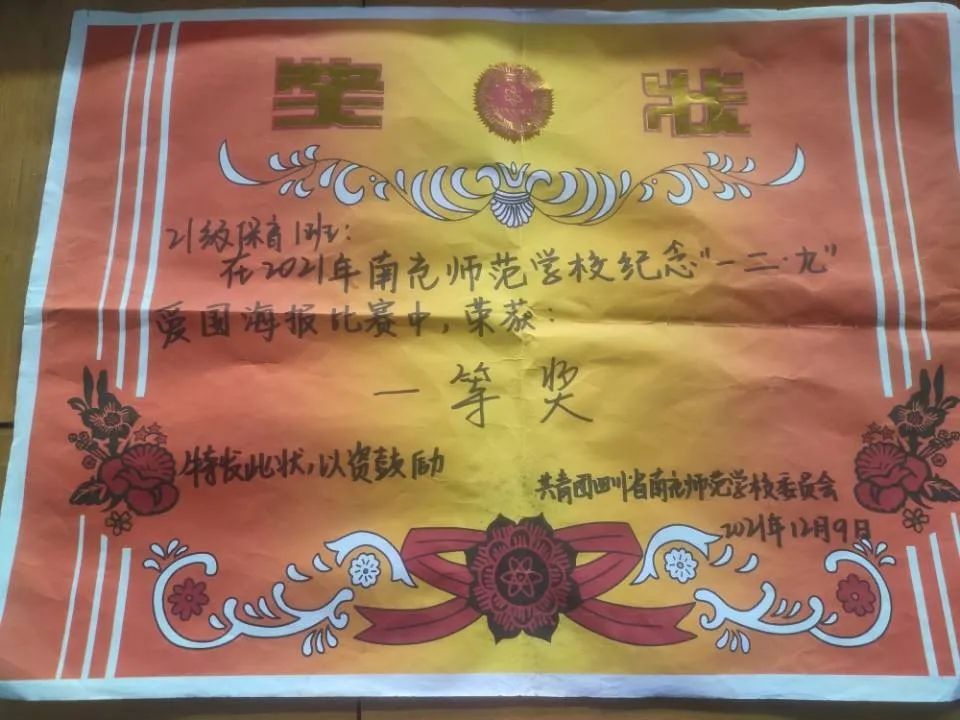 奖 状
21级保育1班：
在2021年南充师范学校纪念"一二·九"
爱国海报比赛中，荣获：
一等奖
特发此状，以资鼓励
共青团四川省南充师范学校委员会
2021年12月9日